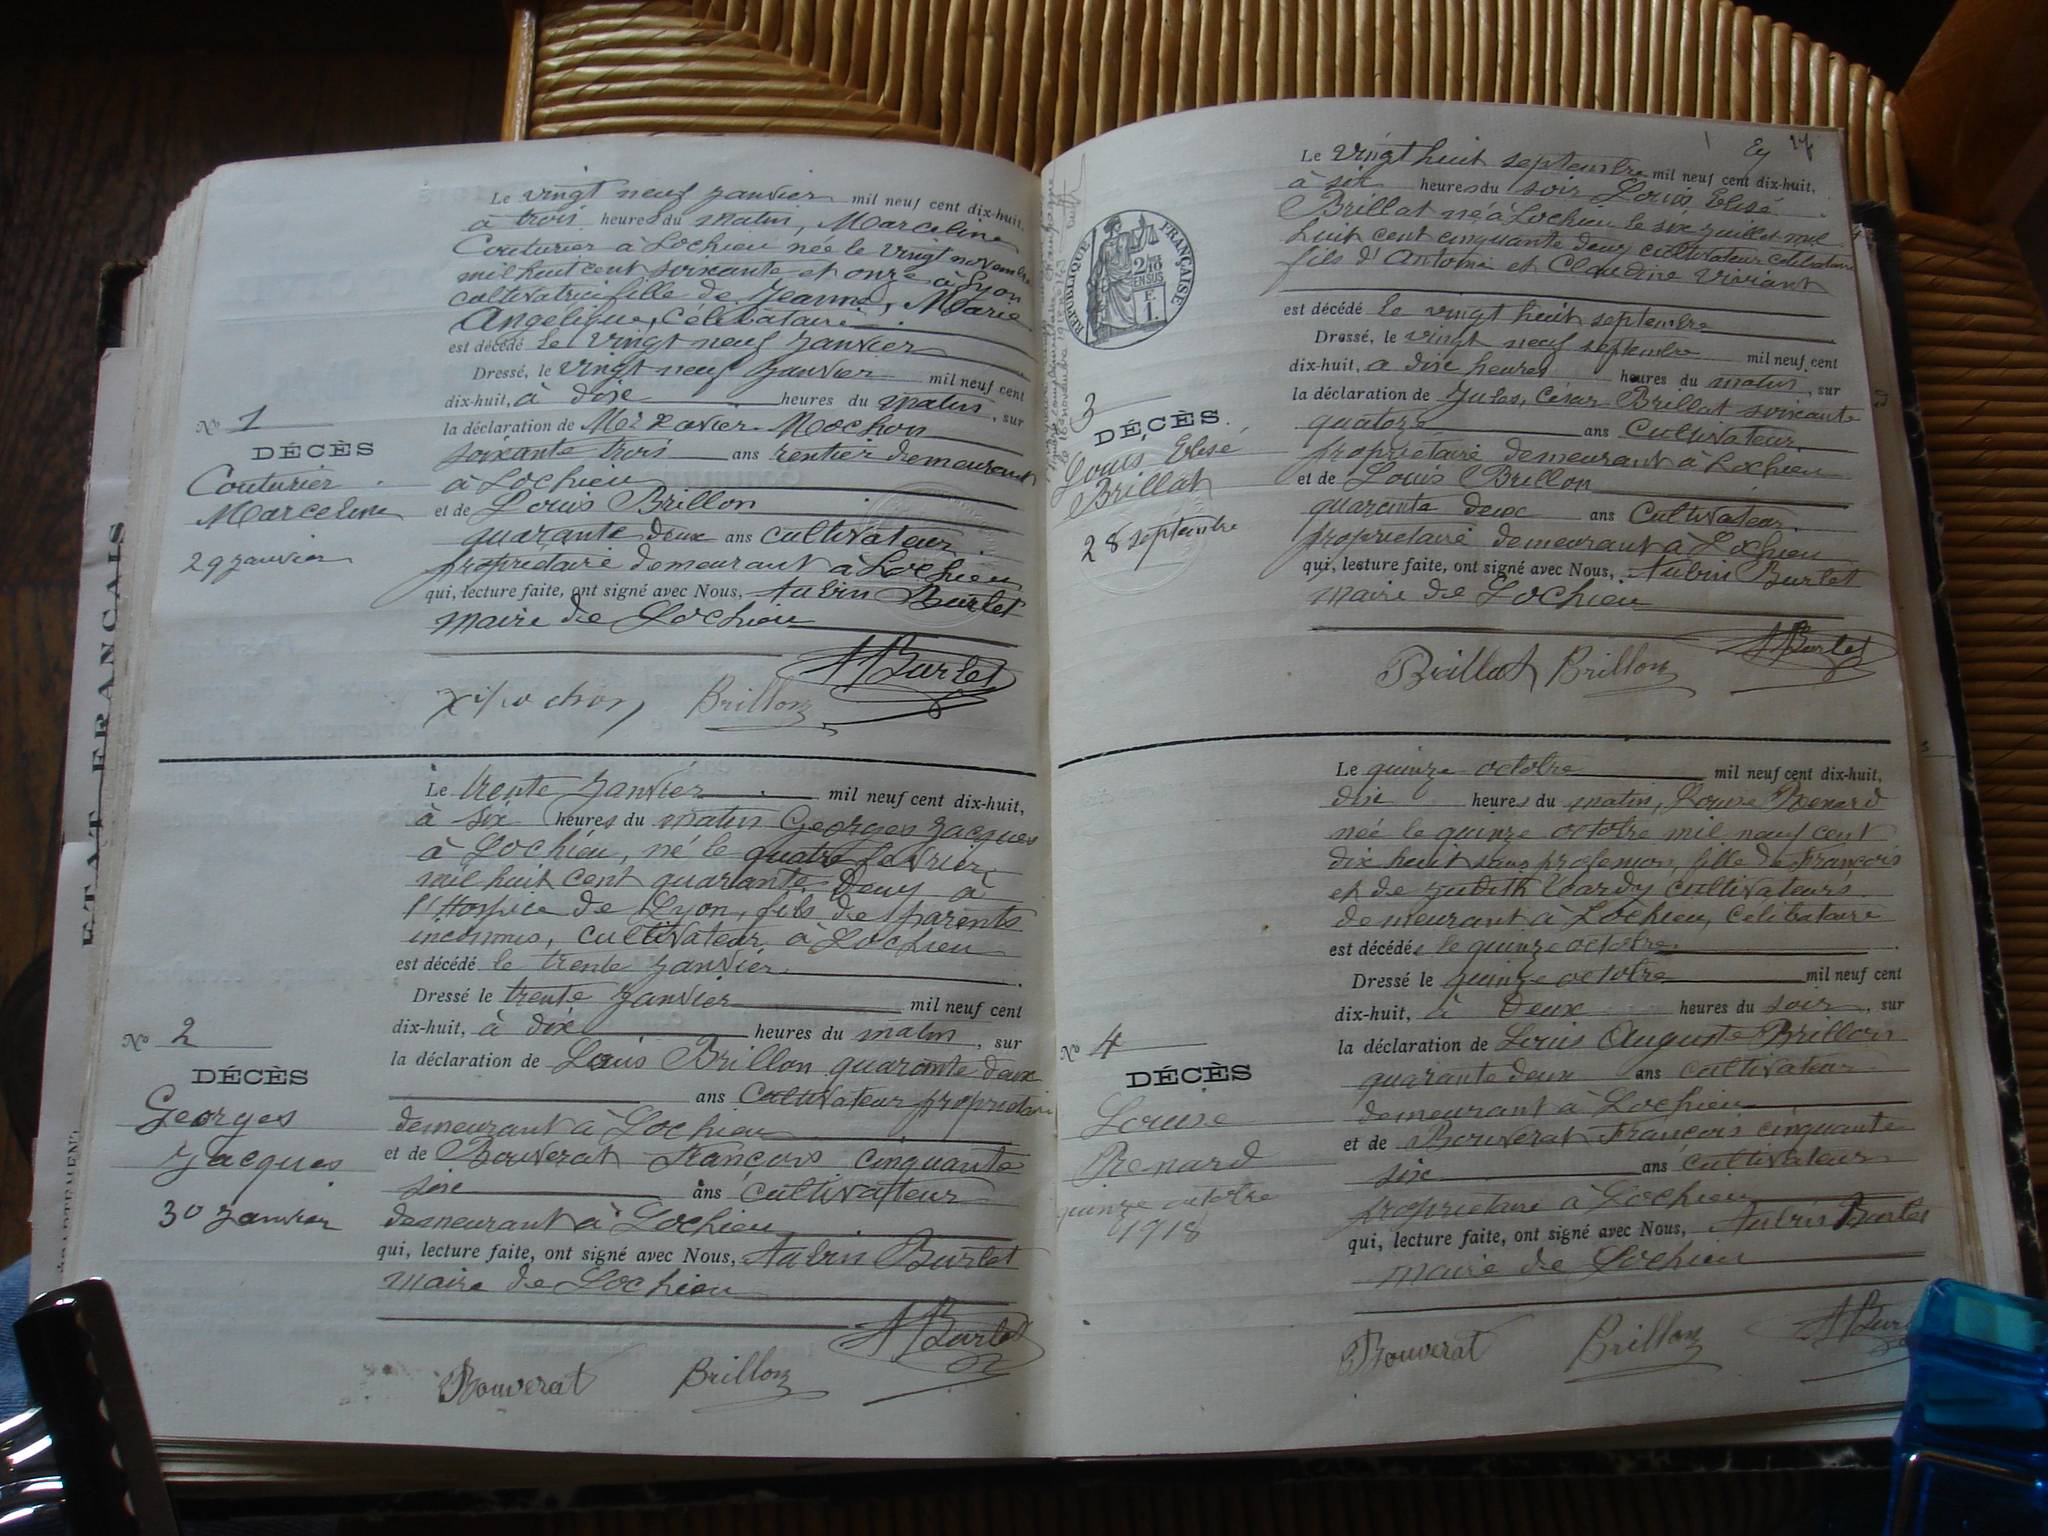 Le vingt neuf janvier mil neuf cent dix-huit,
à trois heures du matin, Marceline
Couturier à Lochieu née le vingt novembre
mil huit cent soixante et onze à Lyon
cultivatrice fille de Jeanne, Marie
Angelique, Célibataire
est décédé le vingt neuf janvier
Dressé, le vingt neuf janvier mil neuf cent
dix-huit, à dix heures du matin, sur
la déclaration de Xavier Mochon
soixante trois ans rentier demeurant
à Lochieu
et de Louis Brillon
quarante deux ans cultivateur
propriétaire demeurant à Lochieu
qui, lecture faite, ont signé avec Nous, Aubin Burlet
maire de Lochieu
ABurlet
Brillon
No 1
DÉCÈS
Couturier
Marceline
29 janvier
Le trente janvier mil neuf cent dix-huit,
à six heures du matin Georges Jacques
à Lochieu, né le quatre février
mil huit cent quarante Deux à
l'Hospice de Lyon, fils de parents
inconnus, cultivateur à Lochieu
est décédé le trente janvier
Dressé le trente janvier mil neuf cent
dix-huit, à dix heures du matin, sur
la déclaration de Louis Brillon quarante deux
ans cultivateur propriétaire
demeurant à Lochieu
et de Bouverat François cinquante
six ans cultivateur
demeurant à Lochieu
qui, lecture faite, ont signé avec Nous, Aubin Burlet
maire de Lochieu
ABurlet
Bouverat Brillon
No 2
DÉCÈS
Georges
Jacques
30 janvier
ETAT FRANCAIS
27
Le vingt huit septembre mil neuf cent dix-huit,
à six heures du soir Louis Elisé
Brillat né à Lochieu le six juillet mil
huit cent cinquante deux cultivateur celibataire
fils d'Antoine et Claudine Viviant
est décédé le vingt huit septembre
Dressé, le vingt neuf septembre mil neuf cent
dix-huit, à dix heures heures du matin, sur
la déclaration de Jules, César Brillat soixante
quatorze ans cultivateur
propriétaire demeurant à Lochieu
et de Louis Brillon
quarante deux ans cultivateur
propriétaire demeurant à Lochieu
qui, lecture faite, ont signé avec Nous, Aubin Burlet
maire de Lochieu
Brillat Brillon ABurlet
RÉPUBLIQUE FRANÇAISE
2/10 EN SUS
3
DÉCÈS
Louis Elisé
Brillat
28 septembre
Le quinze octobre mil neuf cent dix-huit,
dix heures du matin, Louise Renard
née le quinze octobre mil neuf cent
dix huit sans profession, fille de François
et de Judith cultivateurs
demeurant à Lochieu, celibataire
est décédée le quinze octobre
Dressé le quinze octobre mil neuf cent
dix-huit, à Deux heures du soir, sur
la déclaration de Louis Auguste Brillon
quarante deux ans cultivateur
demeurant à Lochieu
et de Bouverat François cinquante
six ans cultivateur
propriétaire à Lochieu
qui, lecture faite, ont signé avec Nous, Aubin Burlet
maire de Lochieu
Bouverat Brillon ABurlet
No 4
DÉCÈS
Louise
Renard
quinze octobre
1918